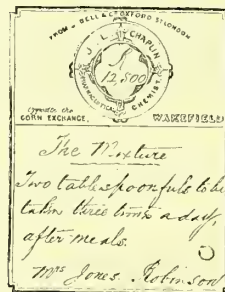 FROM BELL & CO OXFORD ST LONDON
J. L. CHAPLIN
PHARMACEUTICAL CHEMIST.
12,500
Opposite the
CORN EXCHANGE, WAKEFIELD
The Mixture
Two tablespoonfuls to be
taken three times a day,
after meals.
Mrs Jones. Robinson